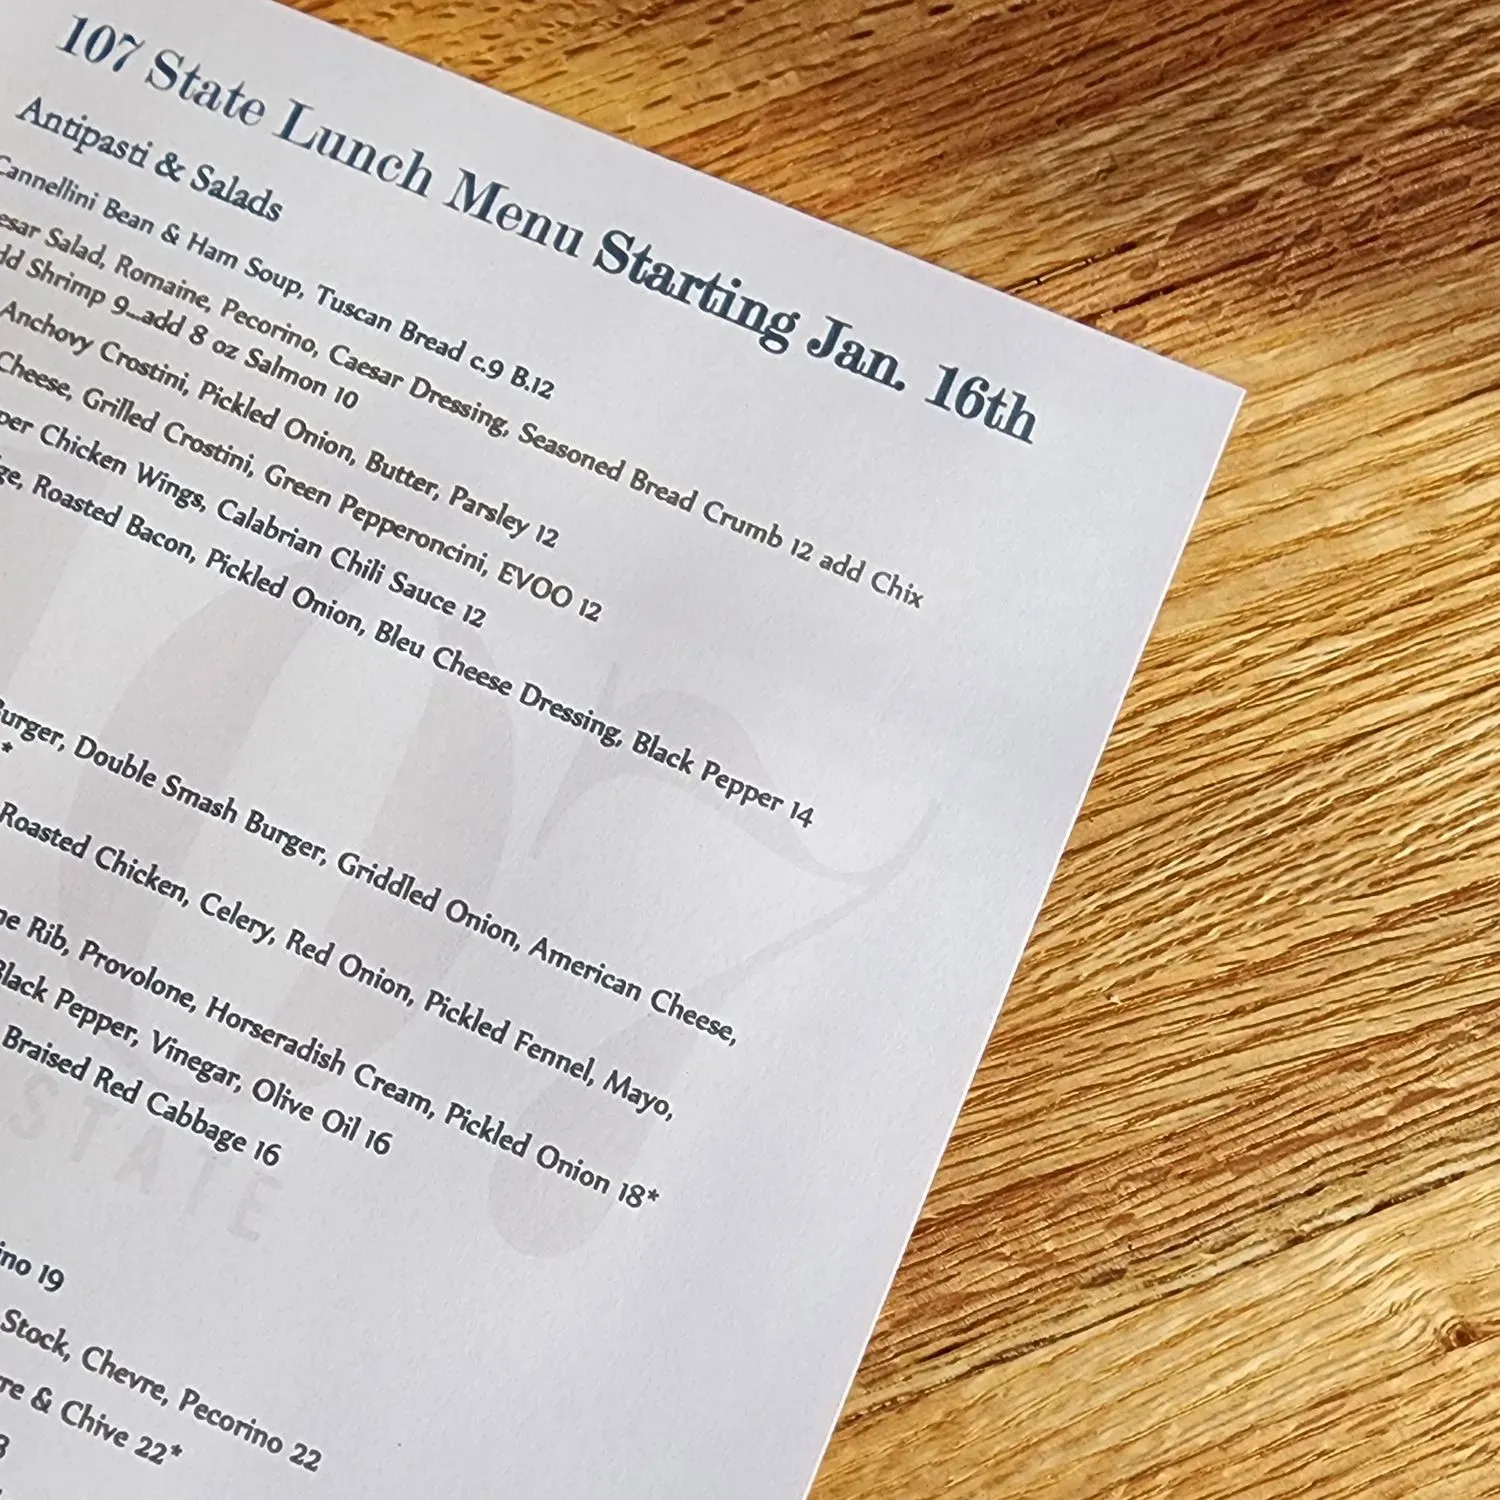 107 State Lunch Menu Starting Jan. 16th
Antipasti & Salads
Cannellini Bean & Ham Soup, Tuscan Bread c.9 B.12
esar Salad, Romaine, Pecorino, Caesar Dressing, Seasoned Bread Crumb 12 add Chix
dd Shrimp 9...add 8 oz Salmon 10
Anchovy Crostini, Pickled Onion, Butter, Parsley 12
Cheese, Grilled Crostini, Green Pepperoncini, EVOO 12
per Chicken Wings, Calabrian Chili Sauce 12
ge, Roasted Bacon, Pickled Onion, Bleu Cheese Dressing, Black Pepper 14
Burger, Double Smash Burger, Griddled Onion, American Cheese,
*
Roasted Chicken, Celery, Red Onion, Pickled Fennel, Mayo,
ne Rib, Provolone, Horseradish Cream, Pickled Onion 18*
Black Pepper, Vinegar, Olive Oil 16
Braised Red Cabbage 16
ino 19
Stock, Chevre, Pecorino 22
re & Chive 22*
3
107
STATE